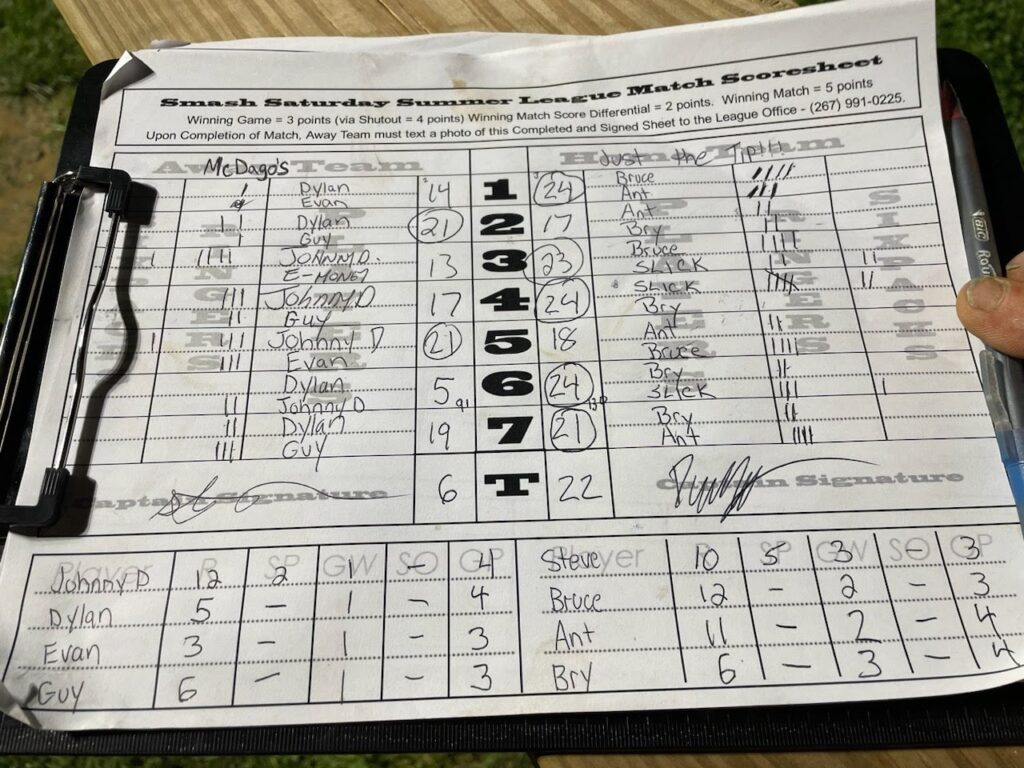 Smash Saturday Summer League Match Scoresheet
Winning Game = 3 points (via Shutout = 4 points) Winning Match Score Differential = 2 points. Winning Match = 5 points
Upon Completion of Match, Away Team must text a photo of this Completed and Signed Sheet to the League Office - (267) 991-0225.
Away Team McDago's Home Team Just the Tip!!!
Dylan 14 1 24 Bruce
Evan Ant
Dylan 21 2 17 Ant
Guy Bry
JOHNNY D. 13 3 23 Bruce
E-MONEY SLICK
Johnny D 17 4 24 SLICK
Guy Bry
Johnny D 21 5 18 Ant
Evan Bruce
Dylan 5 6 24 Bry
Johnny D 91 SLICK
Dylan 19 7 21 Bry
Guy Ant
Captain Signature 6 T 22 Captain Signature
Player R SP GW SO GP Player R SP GW SO GP
Johnny D 12 2 1 - 4 Steve 10 5 3 - 3
Dylan 5 - 1 - 4 Bruce 12 - 2 - 3
Evan 3 - 1 - 3 Ant 11 - 2 - 4
Guy 6 - 1 - 3 Bry 6 - 3 - 4